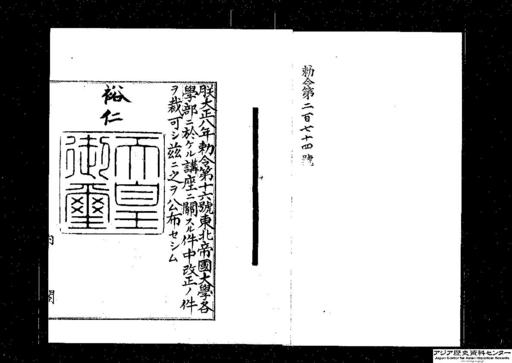 勅令第二百七十四號
朕大正八年勅令第十六號東北帝國大學各
學部ニ於ケル講座ニ關スル件中改正ノ件
ヲ裁可シ茲ニ之ヲ公布セシム
裕仁
天皇御璽
内閣
アジア歴史資料センター
Japan Center for Asian Historical Records